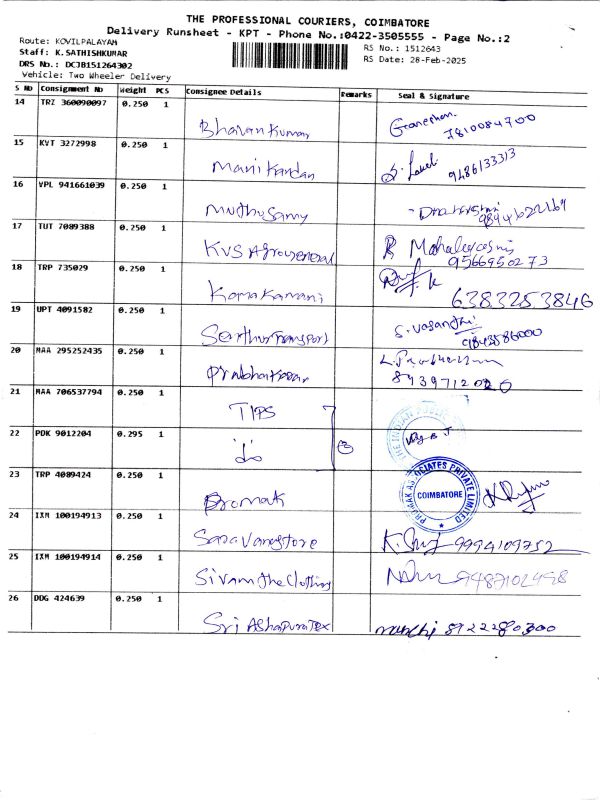 THE PROFESSIONAL COURIERS, COIMBATORE
Delivery Runsheet - KPT - Phone No.:0422-3505555 - Page No.:2
Route: KOVILPALAYAM
Staff: K.SATHISHKUMAR
DRS No.: DCJB151264302
Vehicle: Two Wheeler Delivery
RS No.: 1512643
RS Date: 28-Feb-2025
S No Consignment No Weight PCS Consignee Details Remarks Seal & Signature
14 TRZ 360090097 0.250 1
Bharan Kumar
Ganeshan
7810084700
15 KVT 3272998 0.250 1
Manikandan
9486133313
16 VPL 941661039 0.250 1
Muthu Samy
17 TUT 7089388 0.250 1
KVS Agro general
R Mahalexcsmi
9566950273
18 TRP 735029 0.250 1
6383253846
19 UPT 4091582 0.250 1
Transport
S. Vasanthi
9843586000
20 MAA 295252435 0.250 1
Prabhakaran
21 MAA 706537794 0.250 1
TIPS
22 PDK 9012204 0.295 1
do
23 TRP 4089424 0.250 1
Promak
PROMAK ASSOCIATES PRIVATE LIMITED
COIMBATORE
24 IXM 100194913 0.250 1
Saravanastore
9994109752
25 IXM 100194914 0.250 1
Sivam the Clothing
9487102998
26 DDG 424639 0.250 1
Sri Ashapura Tex
8922280300